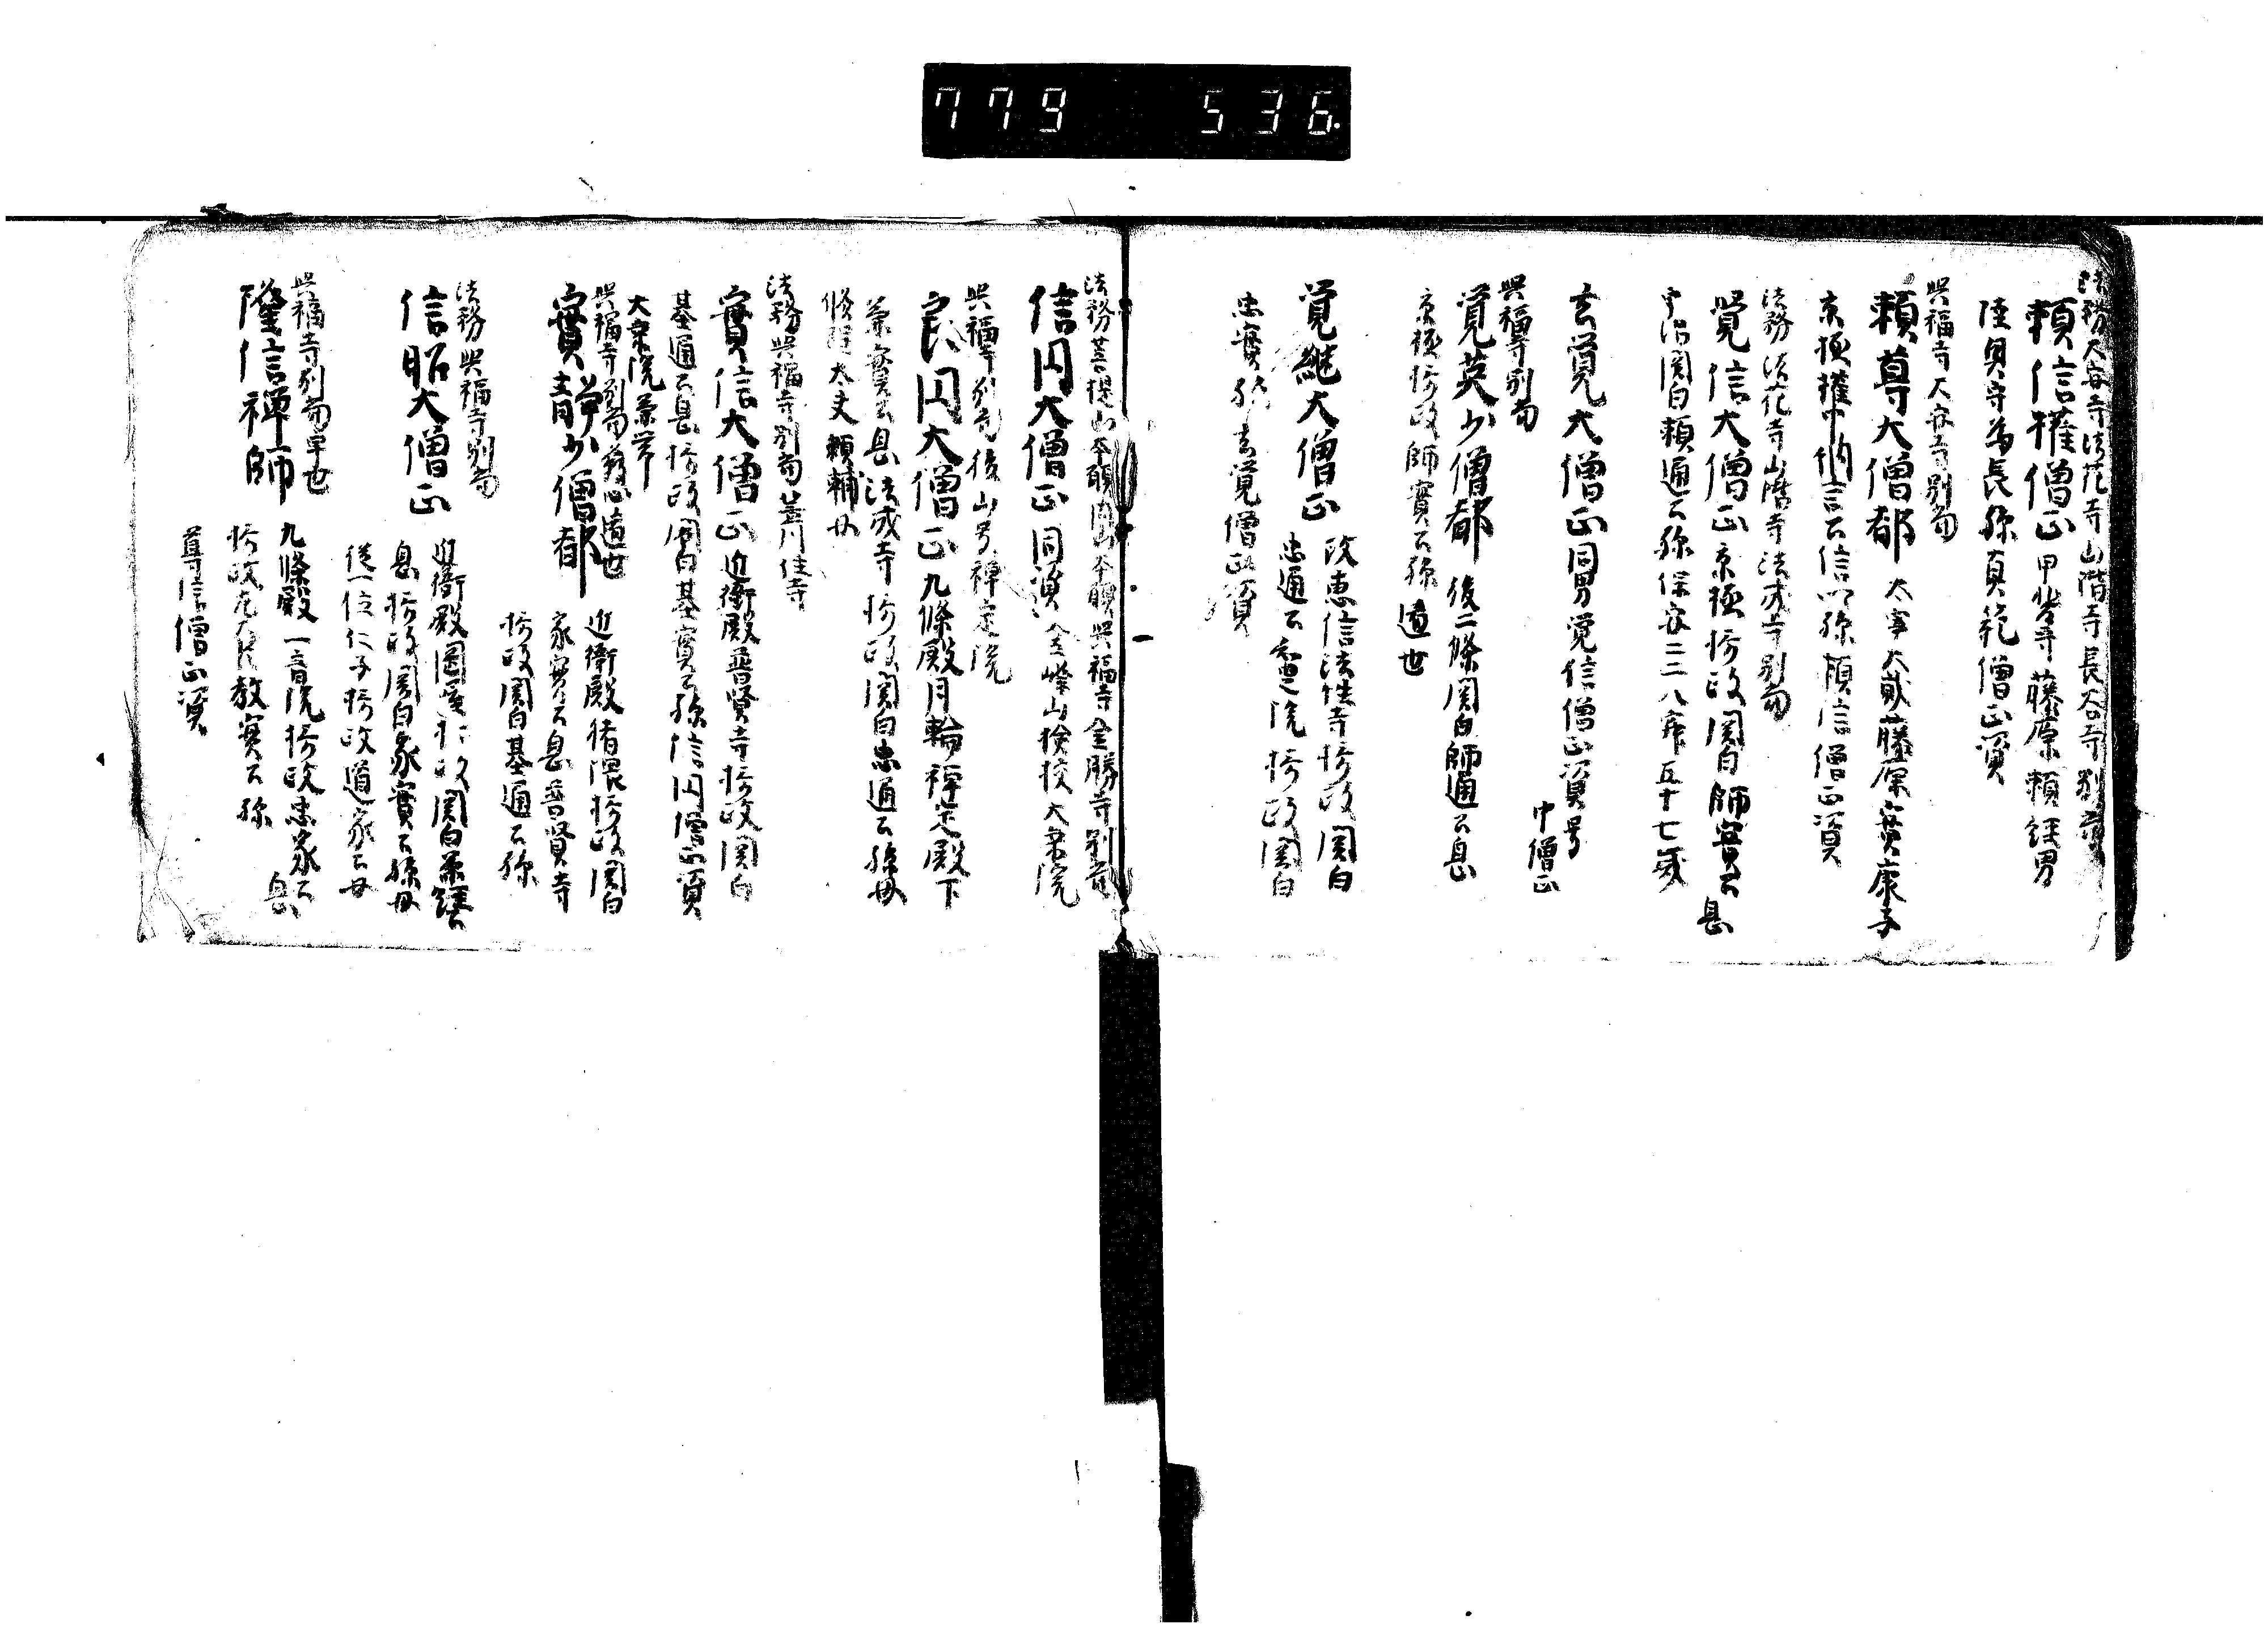 779 536.
法務大安寺法花寺山階寺長谷寺別當
頼信権僧正 甲斐守藤原頼経男
陸奥守為長孫真範僧正資
興福寺大安寺別当
頼尊大僧都 大宰大貳藤原實康子
京極権中納言公信孫頼信僧正資
法務法花寺山階寺法成寺別当
覚信大僧正 京極摂政関白師實公息
宇治関白頼通公孫保安二 八 五十七歳
玄覚大僧正 同男覚信僧正資号
中僧正
興福寺別当
覚英少僧都 後二條関白師通公息
京極摂政師實公孫遁世
覚継大僧正 改恵信法性寺摂政関白
忠通公 院摂政関白
忠實孫玄覚僧正資
法務菩提山本願 興福寺金勝寺別當
信円大僧正 同資金峰山検校大乗院
興福寺別当後山号禅定院
良円大僧正 九條殿月輪禅定殿下
兼實公息法成寺摂政関白忠通公孫母
修理大夫頼輔女
法務興福寺別当菩 住寺
實信大僧正 近衛殿普賢寺摂政関白
基通公息摂政関白基實公孫信円僧正資
大乗院兼帯
興福寺別当発心遁世
實静少僧都 近衛殿猪隈摂政関白
家實公息普賢寺
摂政関白基通公孫
法務興福寺別当
信昭大僧正 近衛殿岡屋摂政関白兼経公
息摂政関白家實公孫母
従一位仁子摂政道家公女
興福寺別当早世
隆信禅師 九條殿一音院摂政忠家公
息
摂政左大臣教實公孫
尊信僧正資